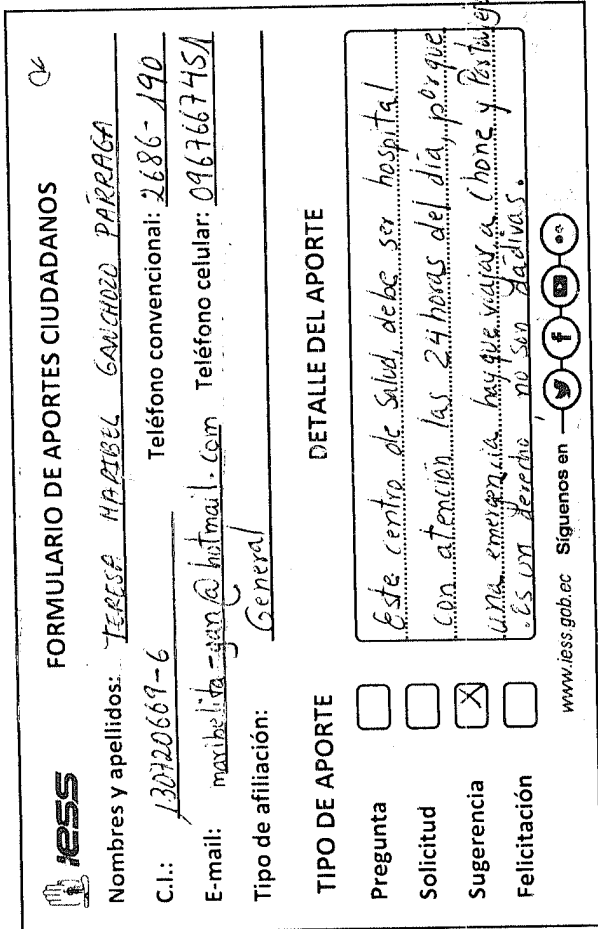 iess
FORMULARIO DE APORTES CIUDADANOS
Nombres y apellidos: TERESA MARIBEL GANCHOZO PÁRRAGA
C.I.: 130720669-6 Teléfono convencional: 2686-190
E-mail: maribelita-gan@hotmail.com Teléfono celular: 0967667451
Tipo de afiliación: General
TIPO DE APORTE
Pregunta
Solicitud
Sugerencia X
Felicitación
DETALLE DEL APORTE
Este centro de Salud, debe ser hospital
con atención las 24 horas del día, porque
una emergencia hay que viajar a Chone y Portoviejo
.Es un derecho no son dádivas.
www.iess.gob.ec Síguenos en